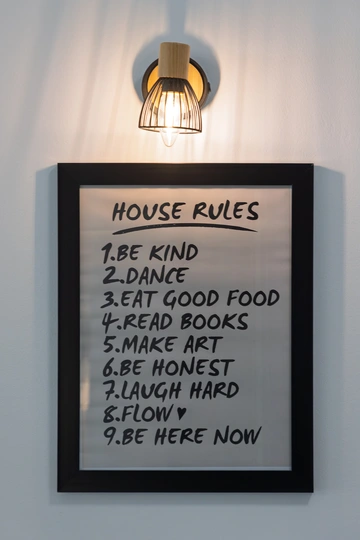 HOUSE RULES
1.BE KIND
2.DANCE
3.EAT GOOD FOOD
4.READ BOOKS
5.MAKE ART
6.BE HONEST
7.LAUGH HARD
8.FLOW♥
9.BE HERE NOW